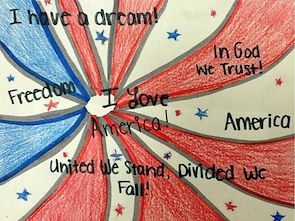 I have a dream!
In God
We Trust!
Freedom
I Love
America!
America
United We Stand, Divided We
Fall!